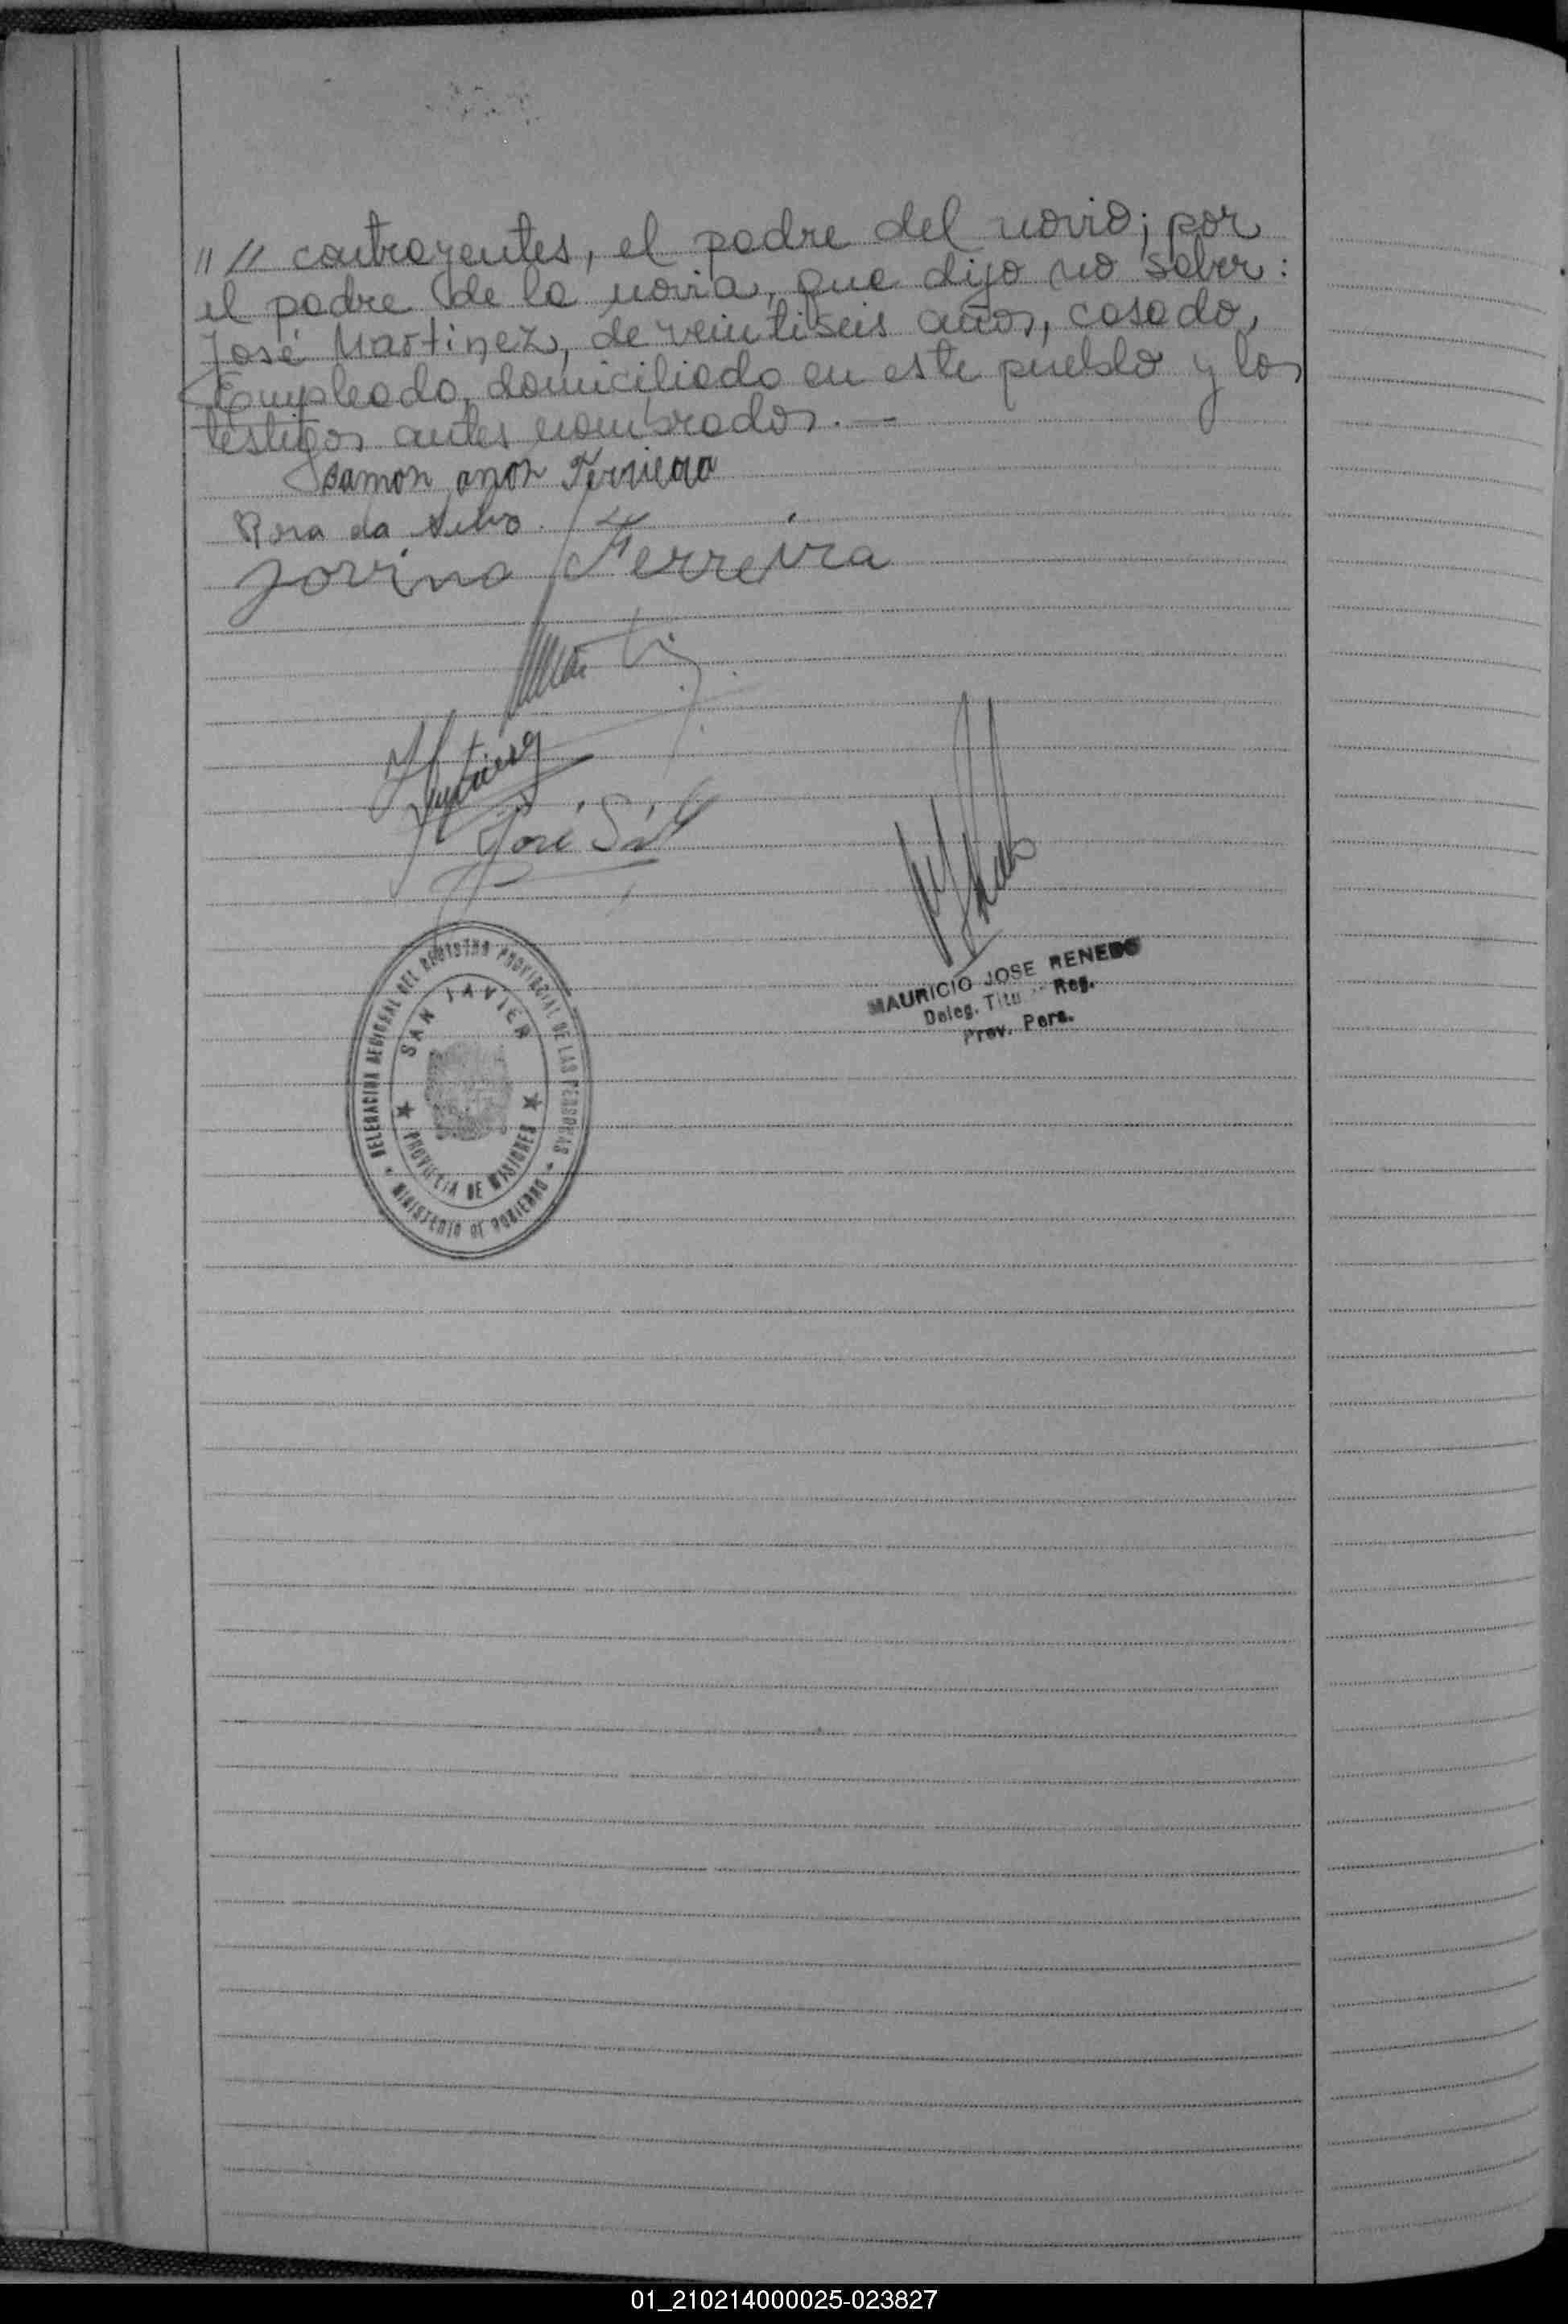 "// contrayentes, el padre del novio; por
el padre de la novia, que dijo no saber:
José Martinez, de veintiseis años, casado,
Empleado, domiciliado en este pueblo y los
testigos antes nombrados. —
Ramon Ferriera
Rosa da Silva.
Jovino Ferreira
José
DELEGACION REGIONAL DEL REGISTRO PROVINCIAL DE LAS PERSONAS
SAN JAVIER
PROVINCIA DE MISIONES
MINISTERIO DE GOBIERNO
MAURICIO JOSE RENEDO
Deleg. Titu Reg.
Prov. Pers.
01_210214000025-023827